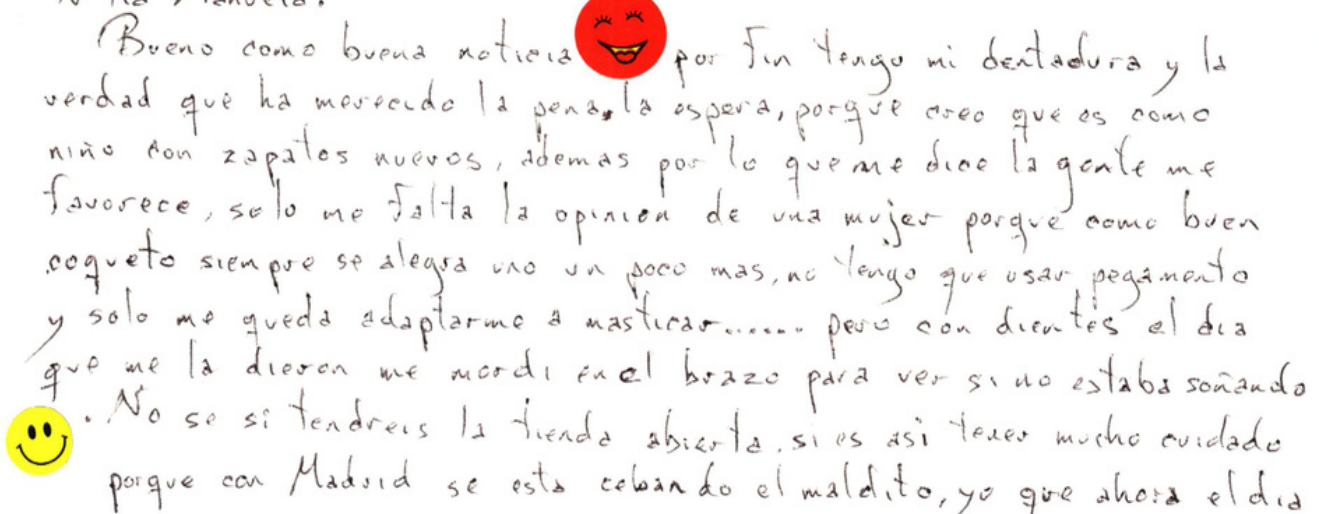 Manuela.
Bueno como buena noticia por fin tengo mi dentadura y la
verdad que ha merecido la pena, la espera, porque creo que es como
niño con zapatos nuevos, ademas por lo que me dice la gente me
favorece, solo me falta la opinion de una mujer porque como buen
coqueto siempre se alegra uno un poco mas, no tengo que usar pegamento
y solo me queda adaptarme a masticar...... pero con dientes el dia
que me la dieron me mordi en el brazo para ver si no estaba soñando
. No se si tendreis la tienda abierta, si es asi tener mucho cuidado
porque con Madrid se esta cebando el maldito, yo que ahora el dia